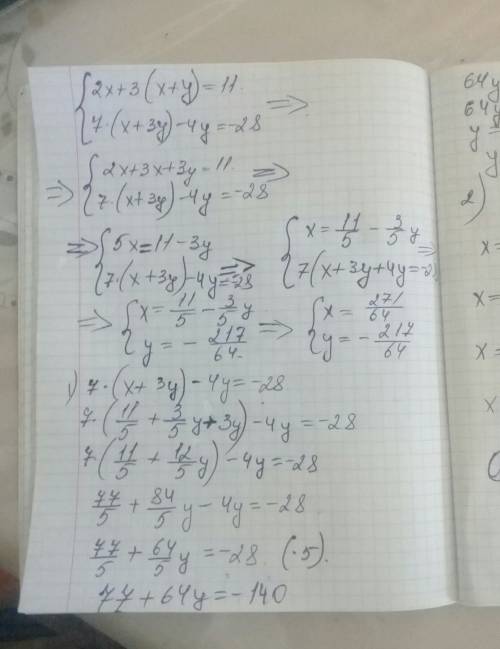 {2x+3(x+y)=11.
{7·(x+3y)-4y=-28 =>
=> {2x+3x+3y=11. =>
{7·(x+3y)-4y=-28
=> {5x=11-3y
{7·(x+3y)-4y=-28 =>
{x=11/5-3/5y =>
{7(x+3y+4y=-28
=> {x=11/5-3/5y
{y=-217/64. =>
{x=271/64
{y=-217/64
1) 7·(x+3y)-4y=-28
7·(11/5+3/5y+3y)-4y=-28
7(11/5+12/5y)-4y=-28
77/5+84/5y-4y=-28
77/5+64/5y=-28 (·5).
77+64y=-140
64y
64y
y
y
2)
x=
x=
x=
x